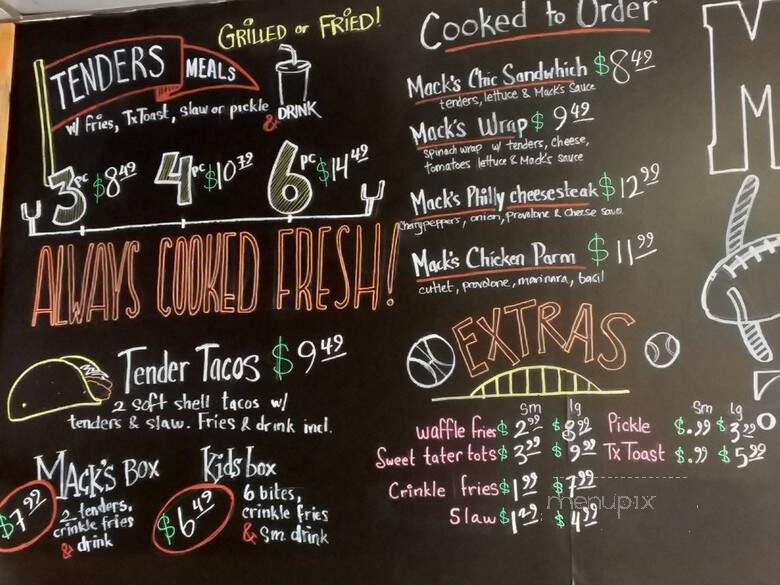 GRILLED or FRIED!
TENDERS MEALS
w/ fries, TxToast, slaw or pickle
& DRINK
3pc $8.49 4pc $10.79 6pc $14.49
ALWAYS COOKED FRESH!
Tender Tacos $9.49
2 soft shell tacos w/
tenders & slaw. Fries & drink incl.
Mack's Box
$7.99
2 tenders,
crinkle fries
& drink
Kids box
$6.49
6 bites,
crinkle fries
& sm. drink
Cooked to Order
Mack's Chic Sandwhich $8.49
tenders, lettuce & Mack's Sauce
Mack's Wrap $9.49
spinach wrap w/ tenders, cheese,
tomatoes lettuce & Mack's sauce
Mack's Philly cheesesteak $12.99
peppers, onion, Provolone & Cheese Sauce
Mack's Chicken Parm $11.99
cutlet, provolone, marinara, basil
EXTRAS
sm lg
waffle fries $2.99 $8.99
Sweet tater tots $3.99 $9.99
Crinkle fries $1.99 $7.99
Slaw $1.29 $4.99
Sm Lg
Pickle $.99 $3.99
TxToast $.99 $5.99
M
menupix